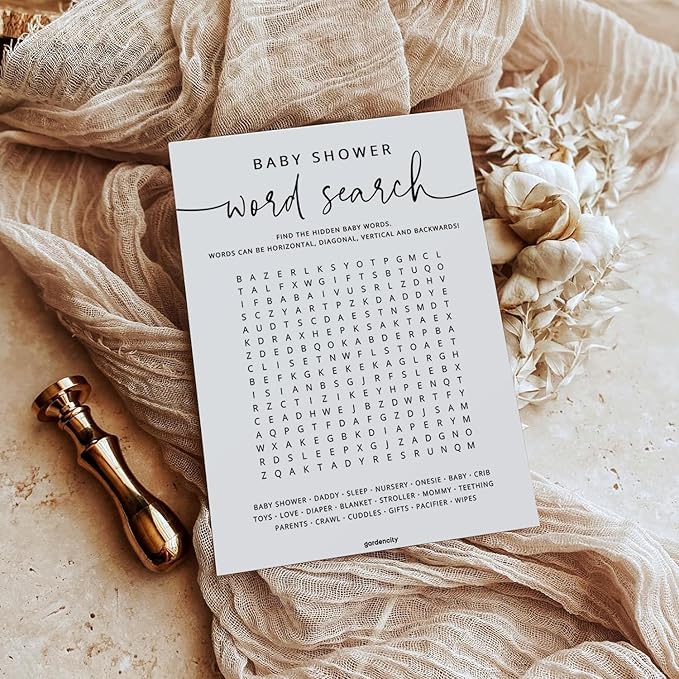 BABY SHOWER
word search
FIND THE HIDDEN BABY WORDS.
WORDS CAN BE HORIZONTAL, DIAGONAL, VERTICAL AND BACKWARDS!
B A Z E R L K S Y O T P G M C L
T A L F X W G I F T S B T U Q O
I F B A B A I V U S R L Z D H V
S C Z Y A R T P Z K D A D D Y E
A U D T S C D A E S T N S M D T
K D R A X H E P K S A K T A E X
Z D E D B Q O K A B D E R P B A
C L I S E T N W F L S T O A E T
B E F K G K E K E K A G L R G H
I S I A N B S G J R F S L E B X
R Z C T I Z I K E Y H P E N Q T
C E A D H W E J B Z D W R T F Y
A Q P G T F D A F G Z D J S A M
W X A K E G B K D I A P E R Y M
R D S L E E P X G J Z A D G N O
Z Q A K T A D Y R E S R U N Q M
BABY SHOWER · DADDY · SLEEP · NURSERY · ONESIE · BABY · CRIB
TOYS · LOVE · DIAPER · BLANKET · STROLLER · MOMMY · TEETHING
PARENTS · CRAWL · CUDDLES · GIFTS · PACIFIER · WIPES
gardencity